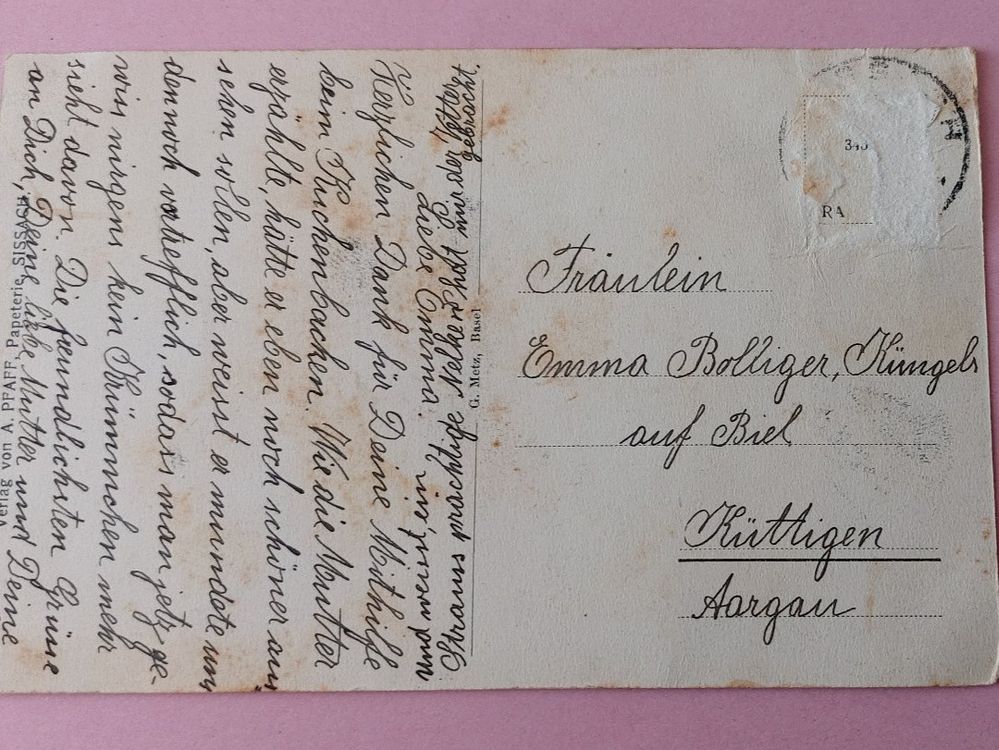 Liebe Emma!
Herzlichen Dank für Deine Mithilfe
beim Kuchenbacken. Wie die Mutter
erzählte, hätte er eben noch schöner aus
sehen sollen, aber weisst er mundete uns
dennoch vortrefflich, sodass man jetz ge-
wiss nirgens kein Krümmchen mehr
sieht davon. Die freundlichsten Grüsse
an Dich, Deine liebe Mutter und Deine
und
Strauss prächtige Nelken hat mir der Vetter
gebracht.
Verlag von A. PFAFF, Papeterie, SISSACH
G. Metz, Basel
RA
Fräulein
Emma Bolliger, Küngels
auf Biel
Küttigen
Aargau